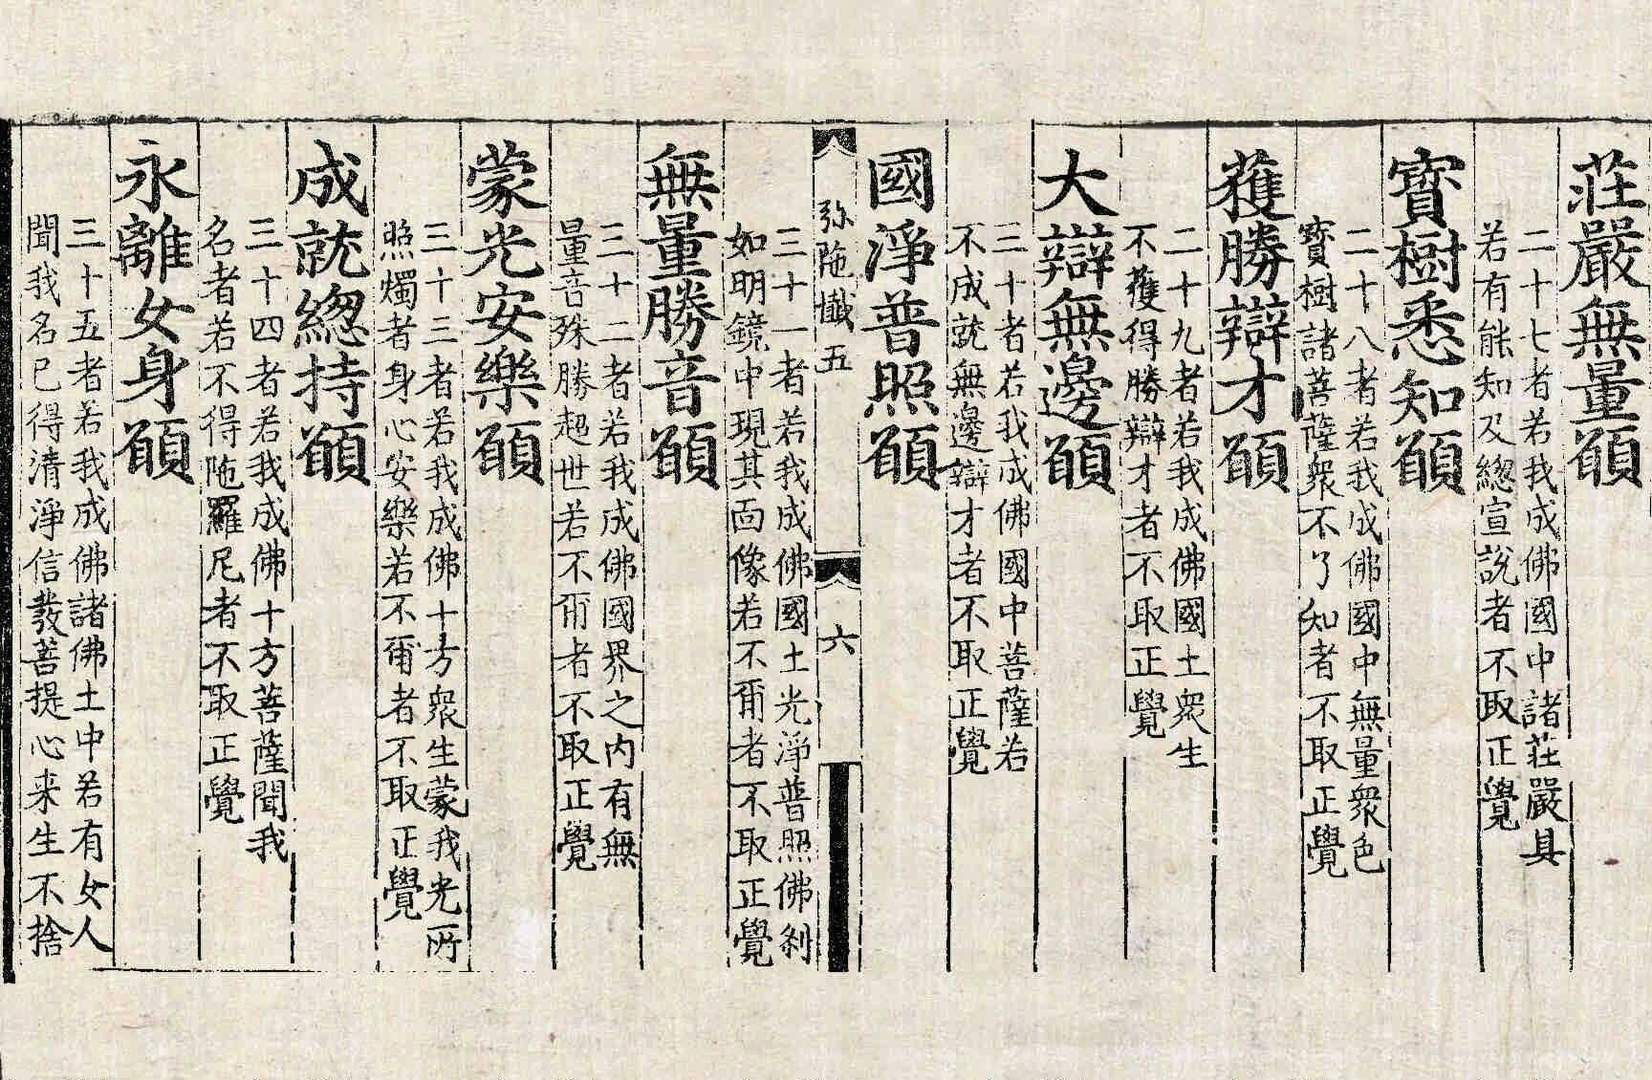 莊嚴無量願
二十七者若我成佛國中諸莊嚴具
若有能知及總宣說者不取正覺
寶樹悉知願
二十八者若我成佛國中無量衆色
寶樹諸菩薩衆不了知者不取正覺
獲勝辯才願
二十九者若我成佛國土衆生
不獲得勝辯才者不取正覺
大辯無邊願
三十者若我成佛國中菩薩若
不成就無邊辯才者不取正覺
國淨普照願
弥陁懴五
六
三十一者若我成佛國土光淨普照佛刹
如明鏡中現其面像若不爾者不取正覺
無量勝音願
三十二者若我成佛國界之内有無
量音殊勝超世若不爾者不取正覺
蒙光安樂願
三十三者若我成佛十方衆生蒙我光所
照燭者身心安樂若不爾者不取正覺
成就緫持願
三十四者若我成佛十方菩薩聞我
名者若不得陁羅尼者不取正覺
永離女身願
三十五者若我成佛諸佛土中若有女人
聞我名已得清淨信發菩提心来生不捨